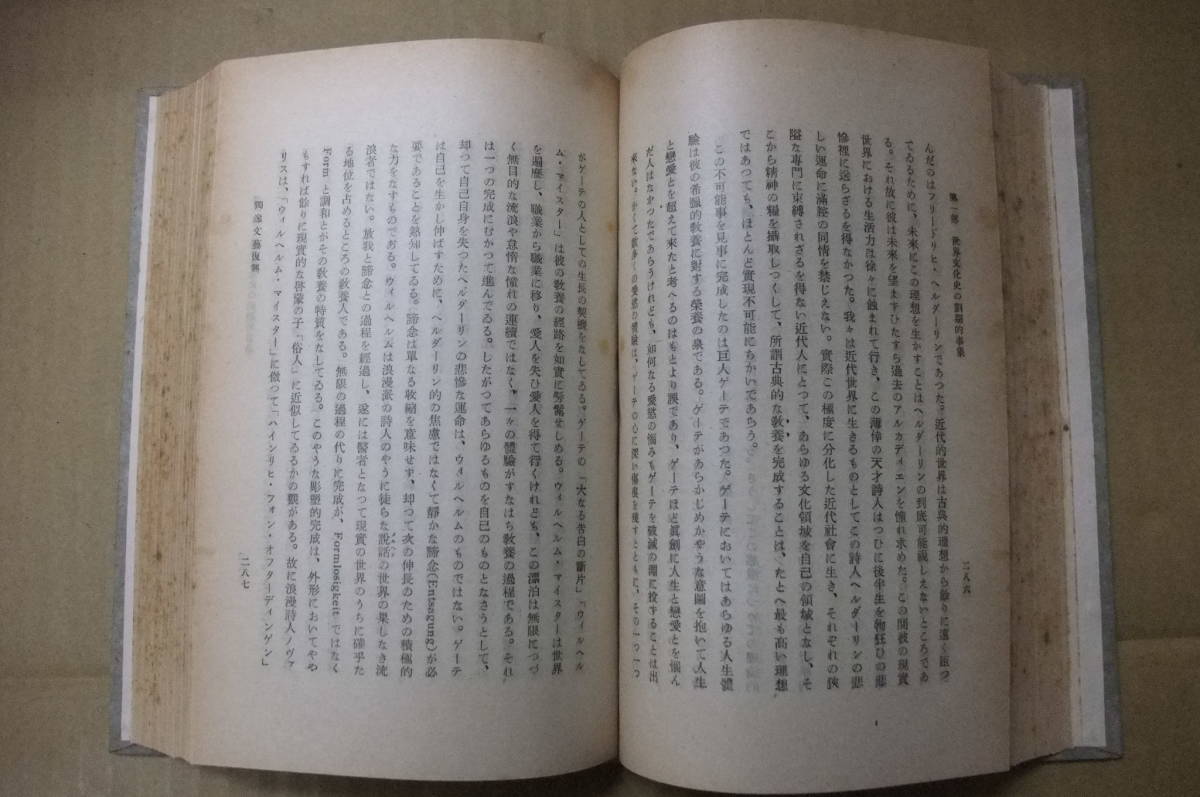 第一部 世界文化史の劃期的事業
二八六
んだのはフリードリヒ・ヘルダーリンであつた。近代的世界は古典的理想から餘りに遠く距つ
てゐるために、未來にこの理想を生かすことはヘルダーリンの到底可能視しえないところであ
る。それ故に彼は未來を望まずひたすら過去のアルカディエンを憧れ求めた。この間彼の現實
世界における生活力は徐々に蝕まれて行き、この薄倖の天才詩人はつひに後半生を物狂ひの悲
慘裡に送らざるを得なかつた。我々は近代世界に生きるものとしてこの詩人ヘルダーリンの悲
しい運命に滿腔の同情を禁じえない。實際この極度に分化した近代社會に生き、それぞれの狹
隘な專門に束縛されざるを得ない近代人にとつて、あらゆる文化領域を自己の領域となし、そ
こから精神の糧を攝取しつくして、所謂古典的な敎養を完成することは、たとへ最も高い理想
ではあつても、ほとんど實現不可能にちかいであらう。
この不可能事を見事に完成したのは巨人ゲーテであつた。ゲーテにおいてはあらゆる人生體
驗は彼の希臘的敎養に對する榮養の泉である。ゲーテがあらかじめかやうな意圖を抱いて人生
と戀愛とを超えて來たと考へるのはもとより誤であり、ゲーテほど眞劍に人生と戀愛とを惱ん
だ人はなかつたであらうけれども、如何なる愛慾の惱みもゲーテを破滅の淵に投することは出
來ない。かくて數多くの愛慾の體驗は、ゲーテの心に深い傷痕を殘すとともに、その一つ一つ
がゲーテの人としての生長の契機をなしてゐる。ゲーテの「大なる告白の斷片」「ウィルヘル
ム・マイスター」は彼の敎養の經路を如實に髣髴せしめる。ウィルヘルム・マイスターは世界
を遍歷し、職業から職業に移り、愛人を失ひ愛人を得て行くけれども、この漂泊は無限につづ
く無目的な流浪や怠惰な憧れの連續ではなく、一々の體驗がすなはち敎養の過程である。それ
は一つの完成にむかつて進んでゐる。したがつてあらゆるものを自己のものとなさうとして、
却つて自己自身を失つたヘルダーリンの悲慘な運命は、ウィルヘルムのものではない。ゲーテ
は自己を生かし伸ばすために、ヘルダーリン的の焦慮ではなくて靜かな諦念(Entsagung)が必
要であることを熟知してゐる。諦念は單なる收縮を意味せず、却つて次の伸長のための積極的
な力をなすものである。ウィルヘルムは浪漫派の詩人のやうに徒らな說話の世界の果しなき流
浪者ではない。放我と諦念との過程を經過し、遂には醫者となつて現實の世界のうちに確乎た
る地位を占めるところの敎養人である。無限の過程の代りに完成が、Formlosigkeit ではなく
Form と調和とがその敎養の特質をなしてゐる。このやうな彫塑的完成は、外形においてやや
もすれば餘りに現實的な啓蒙の子「俗人」に近似してゐるかの觀がある。故に浪漫詩人ノヴァ
リスは、「ウィルヘルム・マイスター」に倣つて「ハインリヒ・フォン・オフターディンゲン」
獨逸文藝復興
二八七